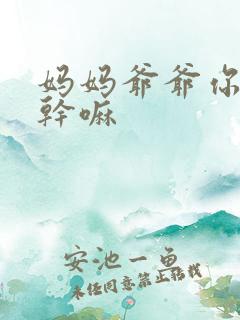 妈妈爷爷你
幹嘛
安池一鱼
未经同意禁止转载